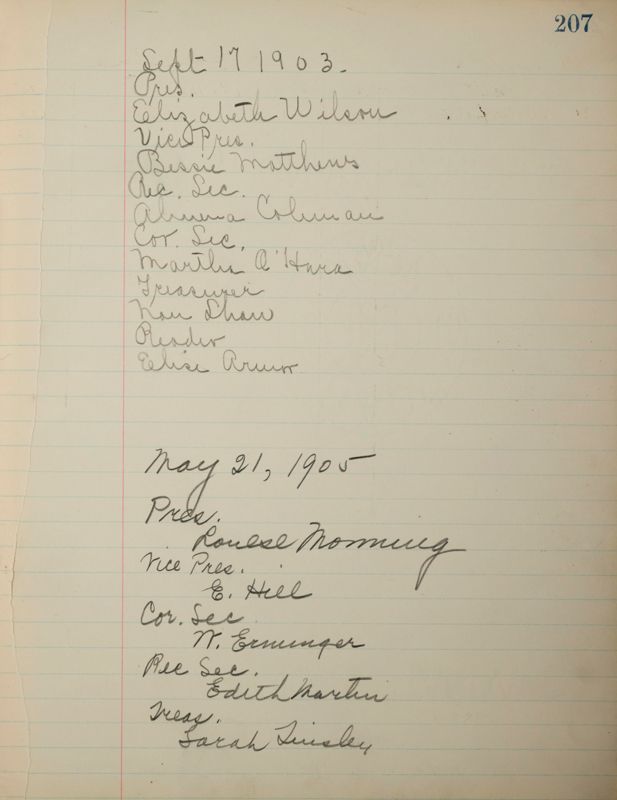 207
Sept 17 1903.
Pres.
Elizabeth Wilson
Vice Pres.
Bessie Matthews
Rec. Sec.
Almena Coleman
Cor. Sec.
Martha O'Hara
Treasurer
Nan Shaw
Reader
Elise Armor
May 21, 1905
Pres.
Louese Monning
Vice Pres.
E. Hill
Cor. Sec
W. Erminger
Rec Sec.
Edith Martin
Treas.
Sarah Tinsley